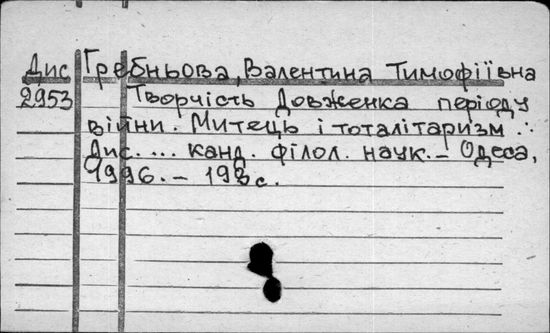 Дис Гребньова, Валентина Тимофіївна
2953 Творчість Довженка періоду
війни. Митець і тоталітаризм.:
Дис. ... канд. філол. наук. – Одеса,
1996. – 193 с.